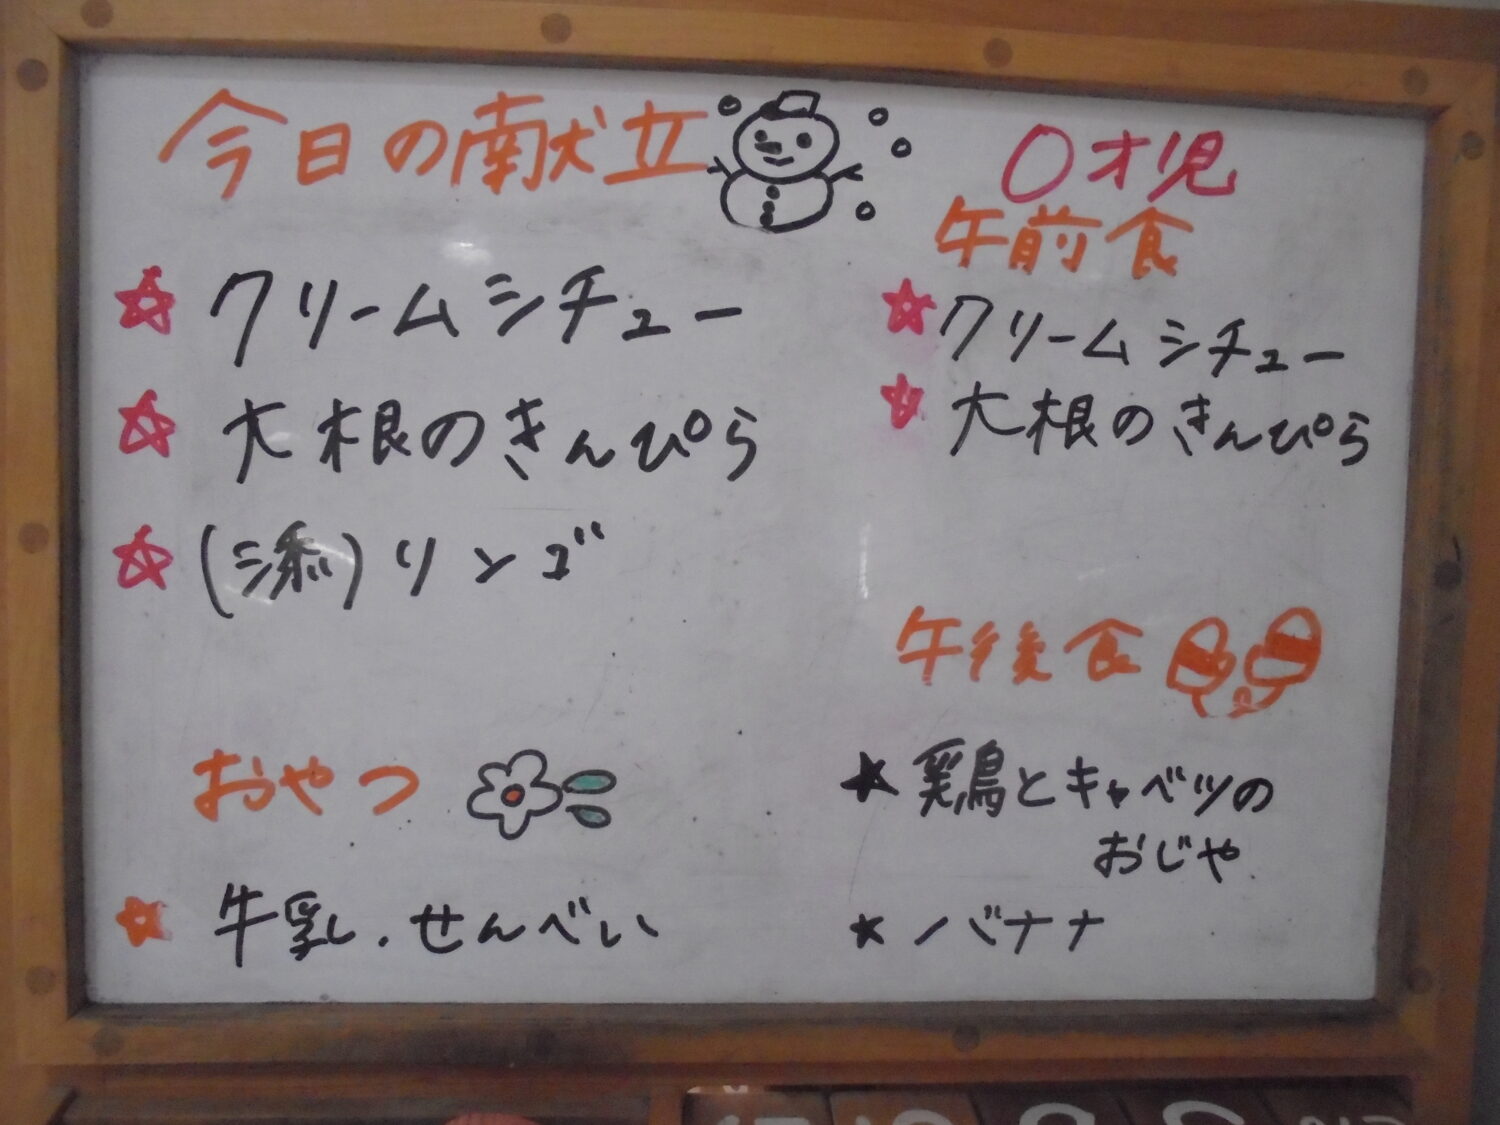 今日の献立
クリームシチュー
大根のきんぴら
(添)リンゴ
おやつ
牛乳.せんべい
0才児
午前食
クリームシチュー
大根のきんぴら
午後食
鶏とキャベツの
おじや
バナナ